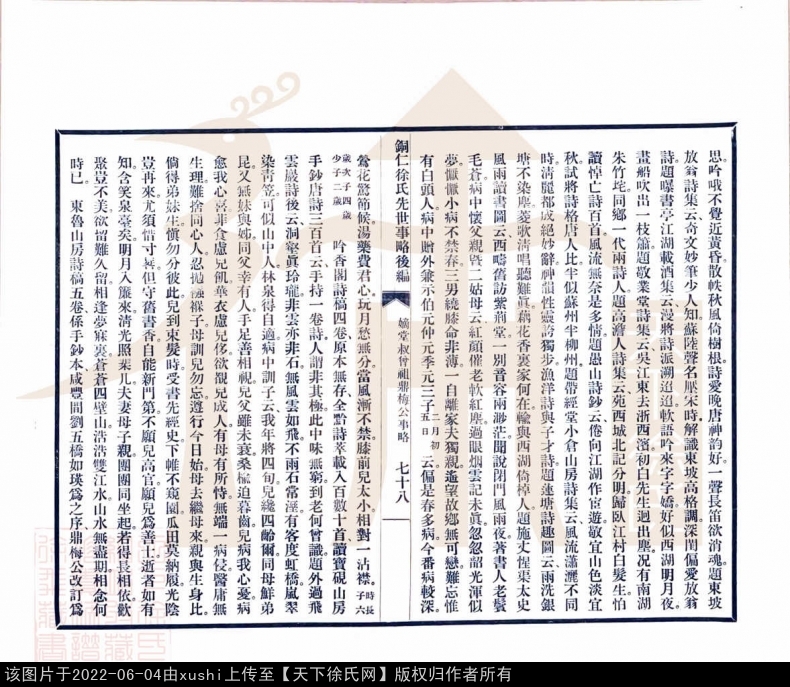 思吟哦不覺近黃昏散帙秋風倚樹根詩愛晚唐神韵好一聲長笛欲消魂題東坡
放翁詩集云奇文妙筆少人知蘇陸聲名厭宋時解識東坡高格調深閨偏愛放翁
詩題曝書亭江湖載酒集云漫將詩派溯迢迢軟語吟來字字嬌好似西湖明月夜
畫船吹出一枝簫題敬業堂詩集云吳江東去浙西濱初白先生迥出塵况有南湖
朱竹垞同鄉一代兩詩人題高澹人詩集云苑西城北記分明歸臥江村白髮生怕
讀悼亡詩百首風流無奈是多情題愚山詩鈔云倦向江湖作宦遊敬宜山色淡宜
秋試將詩格唐人比半似蘇州半柳州題帶經堂小倉山房詩集云風流瀟灑不同
時清麗都成絕妙辭神韻性靈誇獨步漁洋詩與子才詩題蓮塘詩趣圖云雨洗銀
塘不染塵菱歌清唱聽難真藕花香裏家何在惟與西湖倚棹人題施丈惺東太史
風雨讀書圖云西疇舊訪紫荊堂一別音容兩渺茫聞說閉門風雨夜著書人老鬢
毛蒼病中懷父親暨二姑母云紅顏催老軟紅塵過眼烟雲記未真忽忽韶光渾似
夢懨懨小病不禁春三男繞膝命非薄一自離家夫獨親遙望故鄉無可戀難忘惟
有白頭人病中賠外兼示伯元仲元季元三子二月初五日云偏是春多病今番病較深
銅仁徐氏先世事略後編
嫡堂叔曾祖鼎梅公事略
七十八
鶯花驚節候湯藥費君心玩月愁無分當風漸不禁膝前兒太小相對一沾襟時長子六
歲次子四歲少子二歲 吟香閣詩稿四卷原本無存全黔詩萃載入百數十首讀寶硯山房
手鈔唐詩三百首云手持一卷詩人謂非其極此中味無窮到老何曾識題外過飛
雲巖詩後云洞壑真玲瓏非雲亦非石無風雲如飛不雨石常溼有客度虹橋嵐翠
染青笠可似山中人林泉得自適病中訓子云我年將四旬兒纔四齡爾同母鮮弟
昆又無妹與姊同父幸有人手足善相視兒父雖未衰桑榆迫暮齒兒病我心憂病
愈我心喜非食慮兒飢單衣慮兒侈欲覬兒成人有母有所恃無端一病侵醫庸無
生理難捨同心人忍拋襁褓子母訓兒勿忘遵行今日始母去繼母來親與生身比
倘得弟妹生慎勿分彼此兒到束髮時受書先經史下帷不窺園瓜田莫納履光陰
豈再來尤須惜寸晷但守舊書香自能新門第不願兒高官願兒為善士逝者如有
知含笑泉臺矣明月入簾來清光照棐几夫妻母子親團團同坐起若得長相依歡
聚豈不美欲留難久留相逢夢寐裏蒼蒼四壁山浩浩雙江水山水無盡期相念何
時已 東魯山房詩稿五卷係手鈔本咸豐間劉五橋如瑛為之序鼎梅公改訂為
该图片于2022-06-04由xushi上传至【天下徐氏网】版权归作者所有